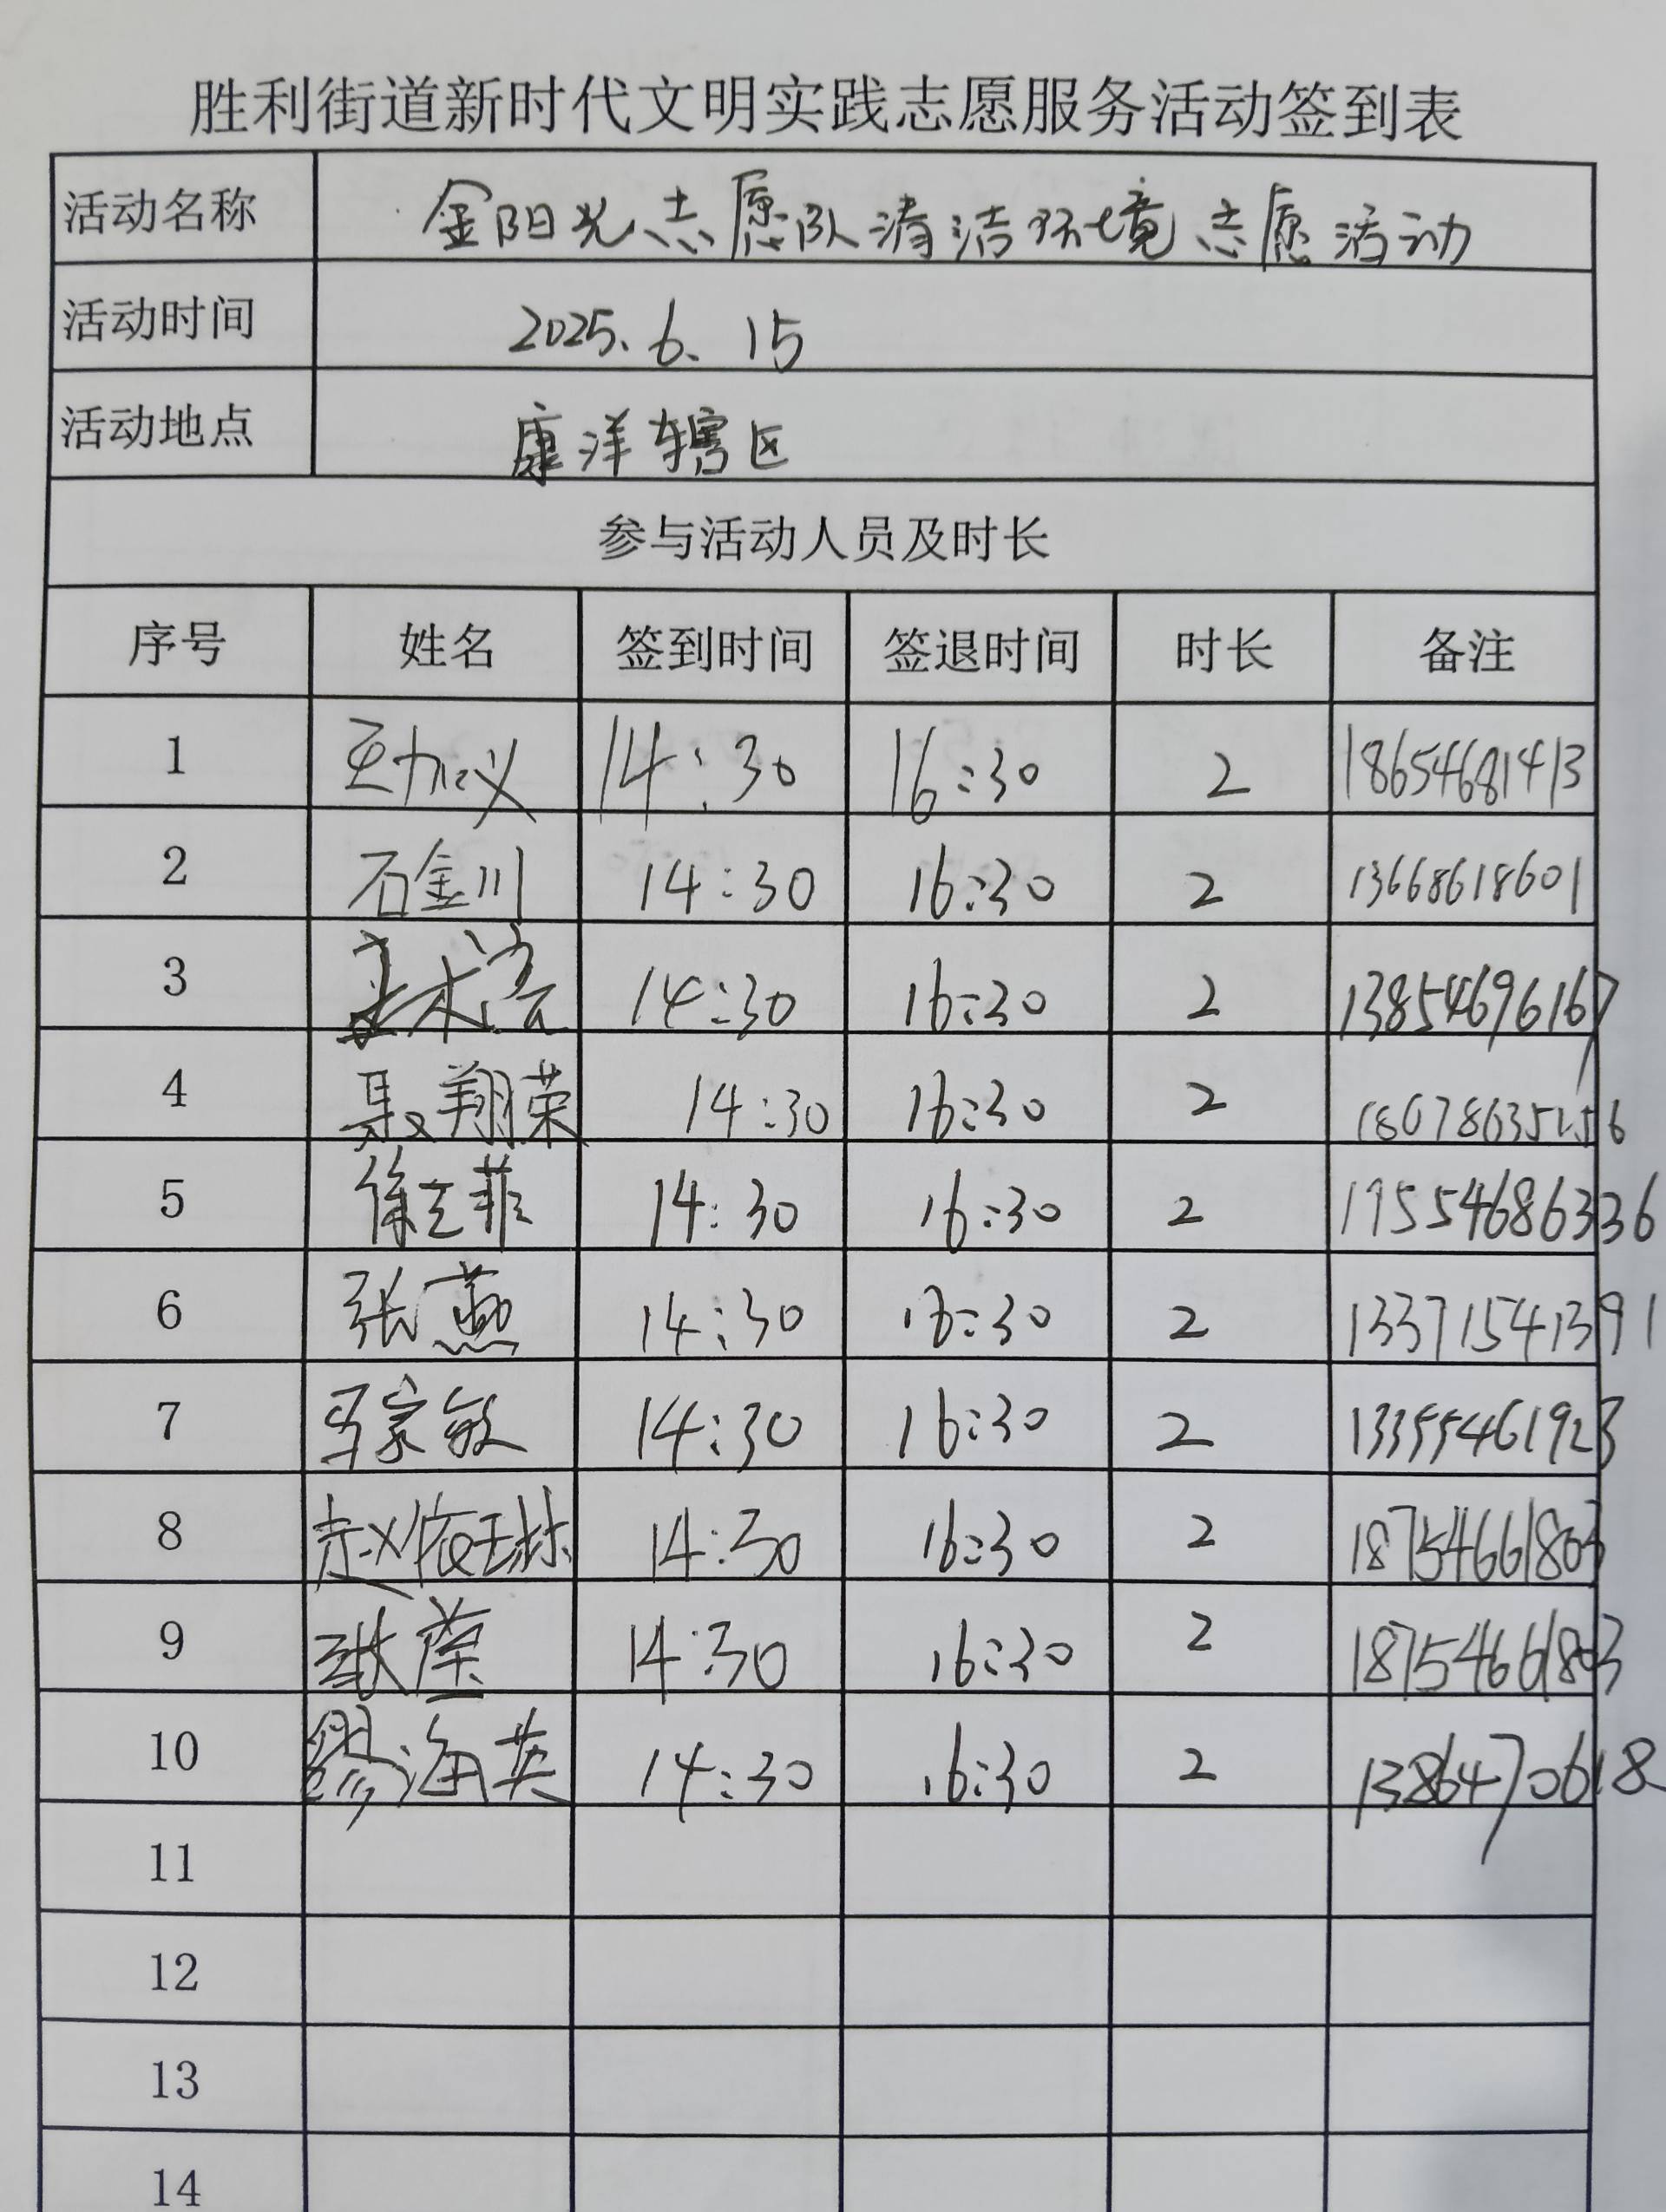 胜利街道新时代文明实践志愿服务活动签到表
活动名称 金阳光志愿队清洁环境志愿活动
活动时间 2025.6.15
活动地点 康洋辖区
参与活动人员及时长
序号 姓名 签到时间 签退时间 时长 备注
1 王加义 14:30 16:30 2 18654681413
2 石金川 14:30 16:30 2 13668618601
3 14:30 16:30 2 13854696167
4 聂翔荣 14:30 16:30 2
5 徐立菲 14:30 16:30 2 19554686336
6 张燕 14:30 16:30 2 13371541391
7 马家敏 14:30 16:30 2 13355461923
8 赵依琳 14:30 16:30 2 18754661803
9 14:30 16:30 2 18754661803
10 缪海英 14:30 16:30 2 13864770618
11
12
13
14